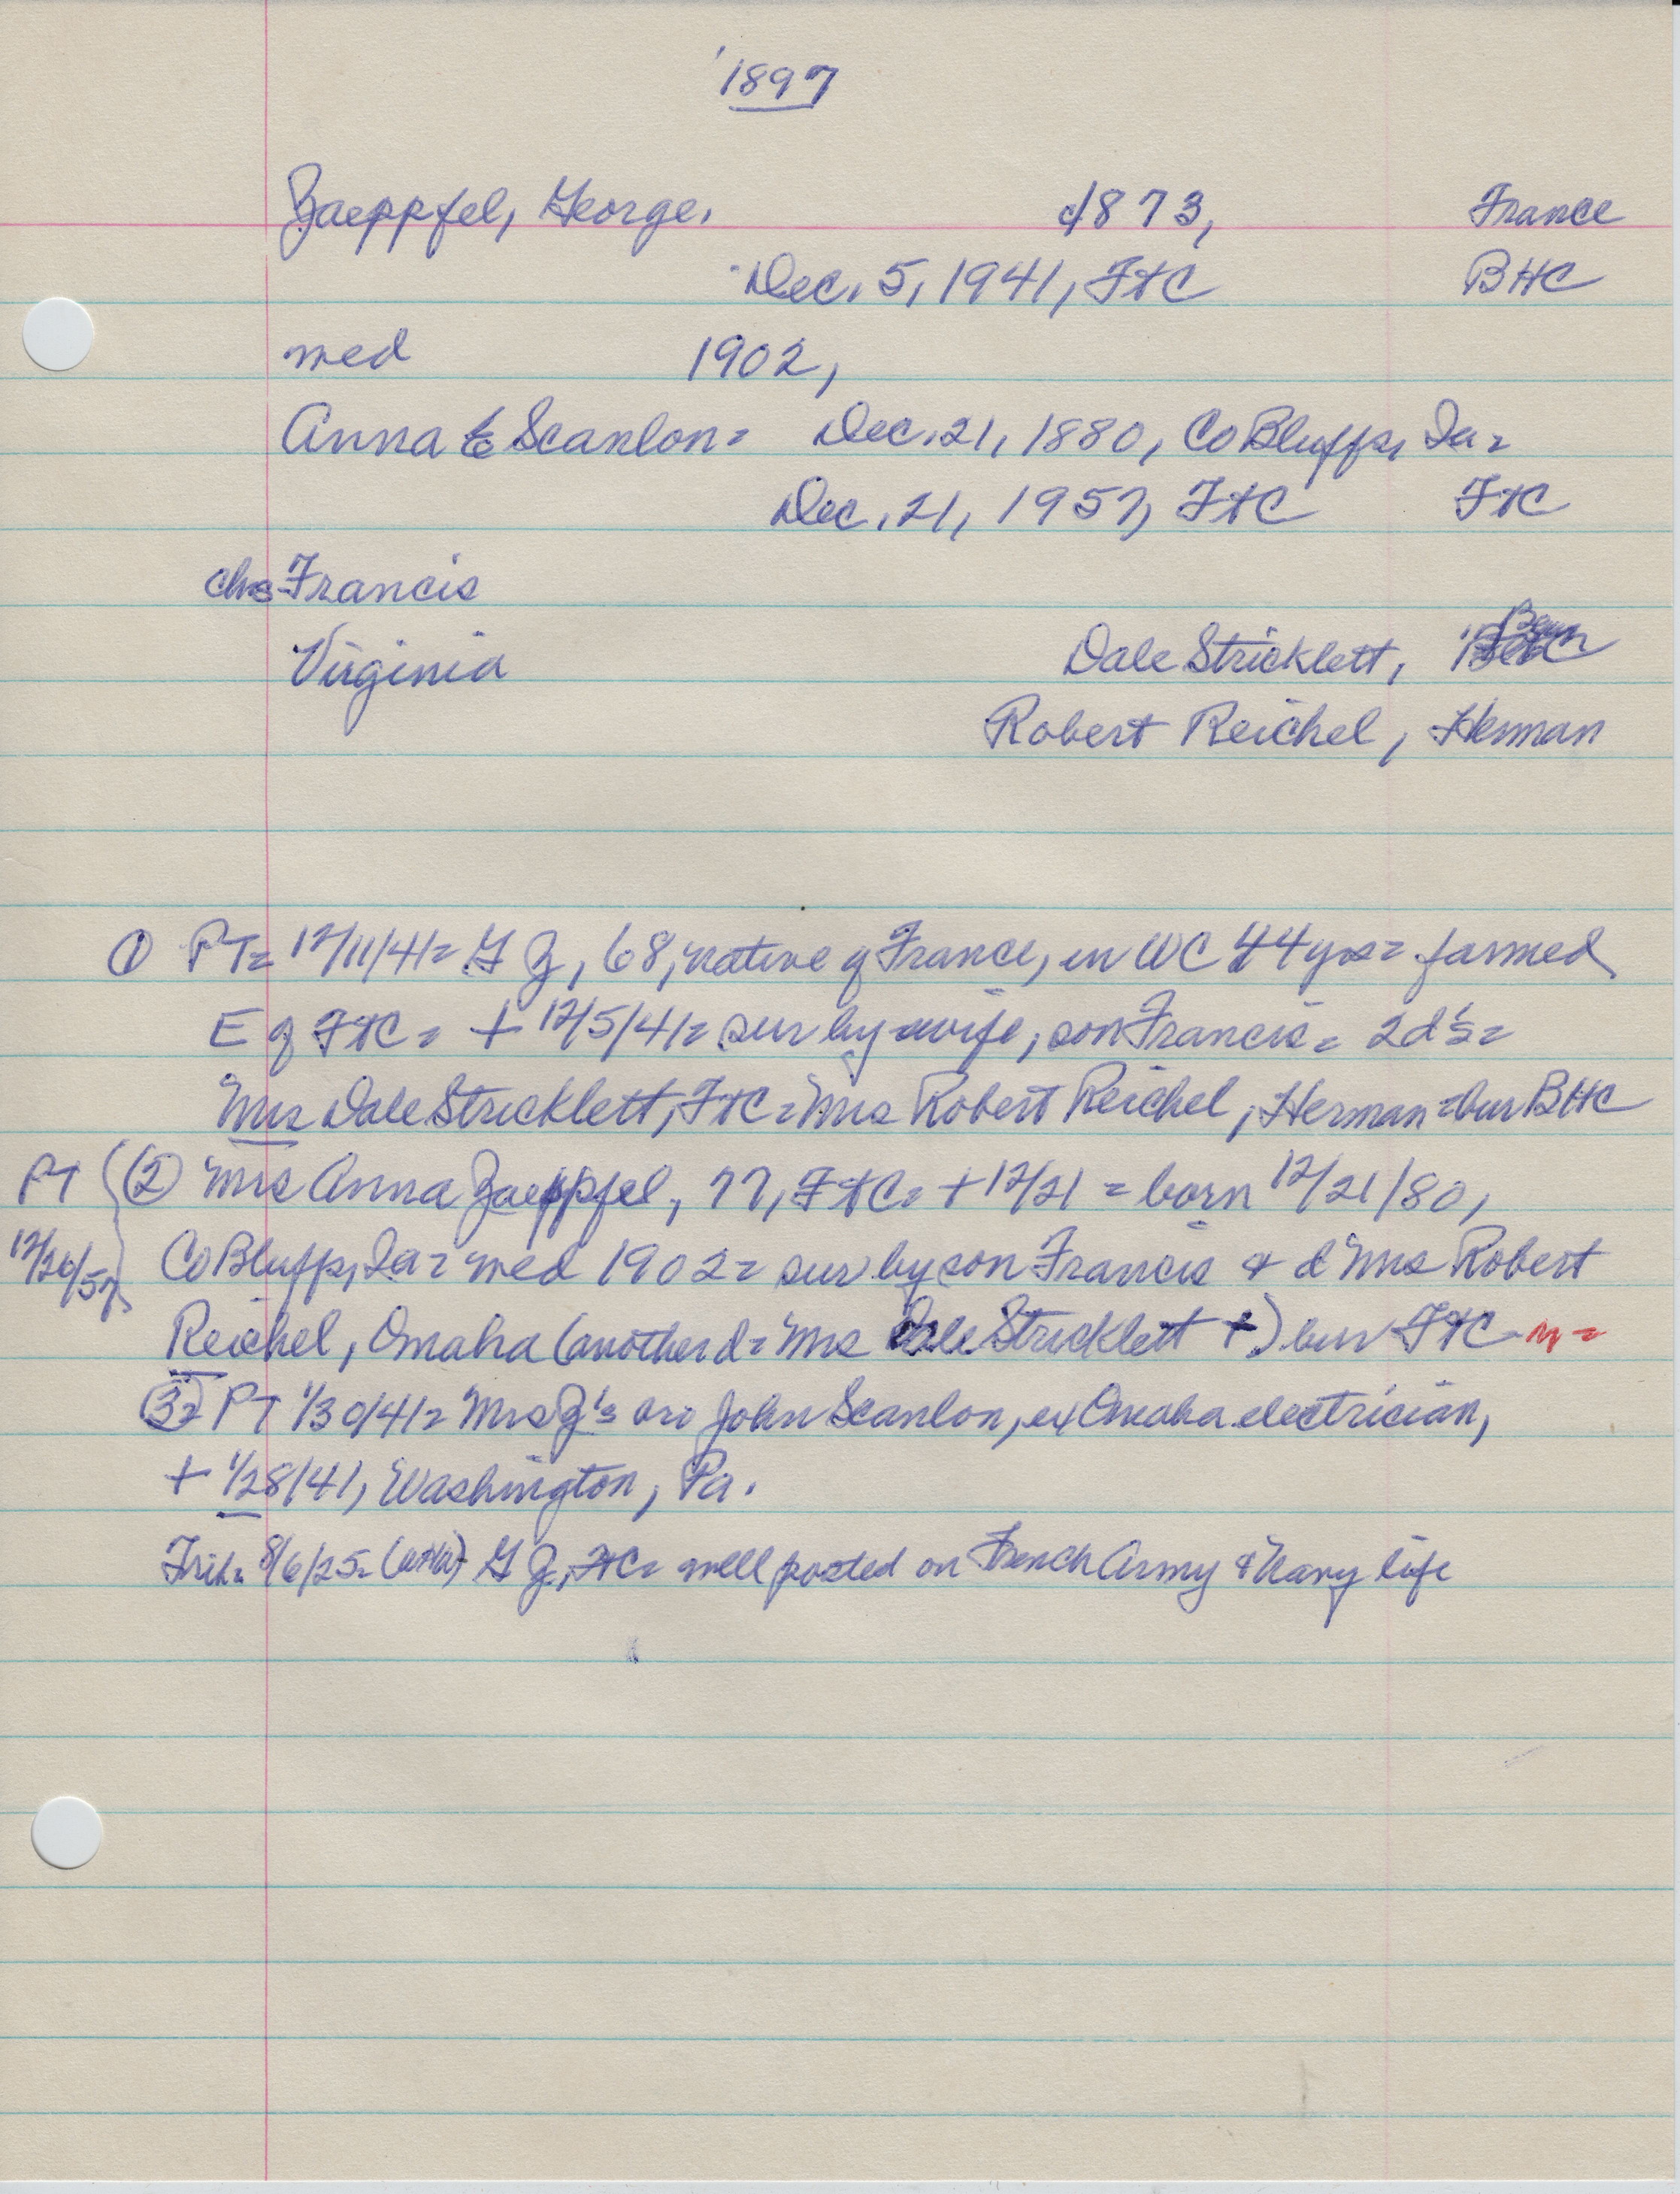 1897
Zaeppfel, George, 1873, France
Dec. 5, 1941, FtC BHC
med 1902,
Anna E Scanlon= Dec. 21, 1880, Co Bluffs, Ia=
Dec. 21, 1957, FtC FtC
chs Francis
Virginia Dale Stricklett,
Robert Reichel, Herman
① PT= 12/11/41= G Z, 68, native of France, in WC 44 yrs= farmed
E of FtC= + 12/5/41= sur by wife, son Francis= 2 d's=
Mrs Dale Stricklett, FtC= Mrs Robert Reichel, Herman= bur BHC
PT ② Mrs Anna Zaeppfel, 77, FtC= + 12/21 = born 12/21/80,
12/26/57 Co Bluffs, Ia= med 1902= sur by son Francis & d Mrs Robert
Reichel, Omaha (another d= Mrs Dale Stricklett +) bur FtC n=
③= PT 1/30/41= Mrs Z's bro John Scanlon, ex Omaha electrician,
+ 1/28/41, Washington, Pa.
8/6/25= G Z, FtC= well posted on French Army & Navy life